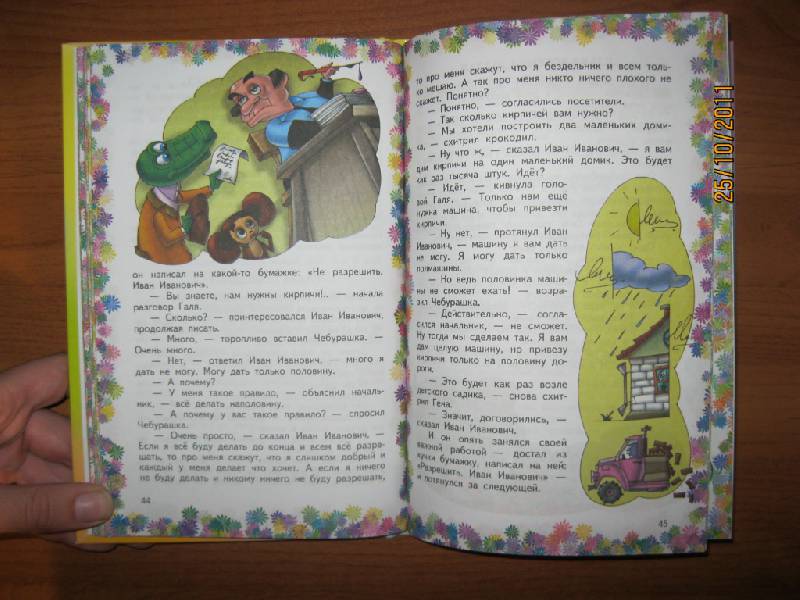 он написал на какой-то бумажке: «Не разрешить.
Иван Иванович».
— Вы знаете, нам нужны кирпичи!.. — начала
разговор Галя.
— Сколько? — поинтересовался Иван Иванович,
продолжая писать.
— Много, — торопливо вставил Чебурашка. —
Очень много.
— Нет, — ответил Иван Иванович, — много я
дать не могу. Могу дать только половину.
— А почему?
— У меня такое правило, — объяснил началь-
ник, — всё делать наполовину.
— А почему у вас такое правило? — спросил
Чебурашка.
— Очень просто, — сказал Иван Иванович. —
Если я всё буду делать до конца и всем всё разре-
шать, то про меня скажут, что я слишком добрый и
каждый у меня делает что хочет. А если я ничего
не буду делать и никому ничего не буду разрешать,
44
то про меня скажут, что я бездельник и всем толь-
ко мешаю. А так про меня никто ничего плохого не
скажет. Понятно?
— Понятно, — согласились посетители.
— Так сколько кирпичей вам нужно?
— Мы хотели построить два маленьких доми-
ка, — схитрил крокодил.
— Ну что ж, — сказал Иван Иванович, — я вам
дам кирпичи на один маленький домик. Это будет
как раз тысяча штук. Идёт?
— Идёт, — кивнула голо-
вой Галя. — Только нам ещё
нужна машина, чтобы привезти
кирпичи.
— Ну нет, — протянул Иван
Иванович, — машину я вам дать
не могу. Я могу дать только
полмашины.
— Но ведь половинка маши-
ны не сможет ехать! — возра-
зил Чебурашка.
— Действительно, — согла-
сился начальник, — не сможет.
Ну тогда мы сделаем так. Я вам
дам целую машину, но привезу
кирпичи только на половину до-
роги.
— Это будет как раз возле
детского садика, — снова схит-
рил Гена.
— Значит, договорились, —
сказал Иван Иванович.
И он опять занялся своей
важной работой — достал из
кучки бумажку, написал на ней:
«Разрешить. Иван Иванович» —
и потянулся за следующей.
45
25/10/2011